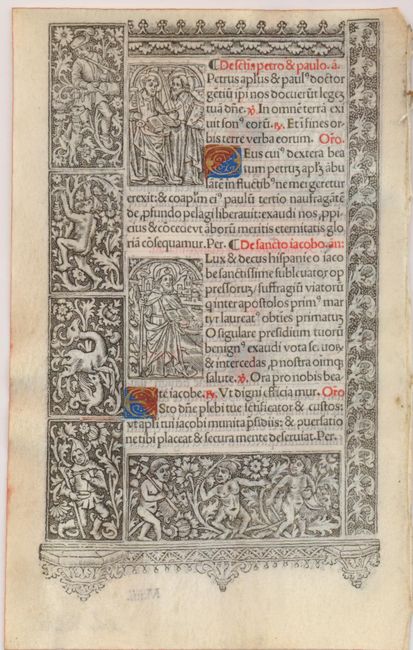 ¶De sctis petro & paulo. ā.
Petrus aplus & paulꝰ doctor
gētiū ipi nos docuerūt legeꝫ
tuā dn̄e. ℣. In omnē terrā exi
uit sonꝰ eorū. ℟. Et ī fines or
bis terre verba eorum. Oro.
Deus cuiꝰ dextera bea
tum petruꝫ apl'ꝫ ābu
lātē in fluctibꝰ ne mergeretur
erexit: & coapl'm eiꝰ paulū tertio naufragātē
de pfundo pelagi liberauit: exaudi nos, ppi
cius & cōcede vt āborū meritis eternitatis glo
riā cōsequamur. Per. ¶De sancto iacobo. an:
Lux & decus hispanie o iaco
be sanctissime subleuator op
pressoruꝫ / suffragiū viatorū
q inter apostolos primꝰ mar
tyr laureatꝰ obtīes primatuꝫ
O sīgulare presidium tuorū
benignꝰ exaudi vota seruorꝫ
& intercedas, p nostra oīmꝫ
salute. ℣. Ora pro nobis bea
te iacobe. ℟. Vt digni efficiamur. Oro
Esto dn̄e plebi tue scīficator & custos:
vt apl'i tui iacobi munita psidiis: & cōuersatiō
ne tibi placeat & secura mente deseruiat. Per.